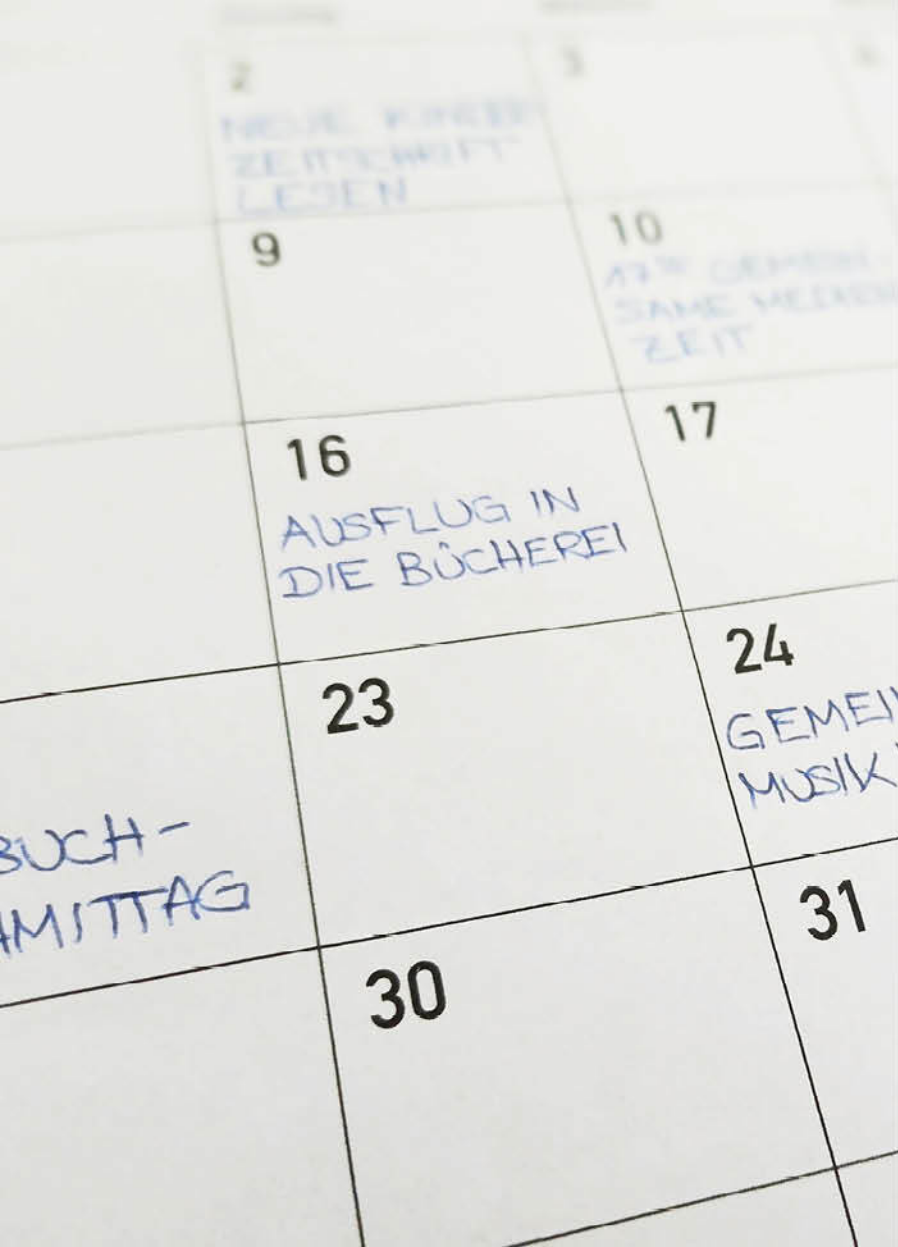 2
3
NEUE KINDER
ZEITSCHRIFT
LESEN
9
10
17⁰⁰ GEMEIN-
SAME MEDIEN
ZEIT
16
17
AUSFLUG IN
DIE BÜCHEREI
23
24
GEMEIN
MUSIK
BUCH-
MITTAG
30
31